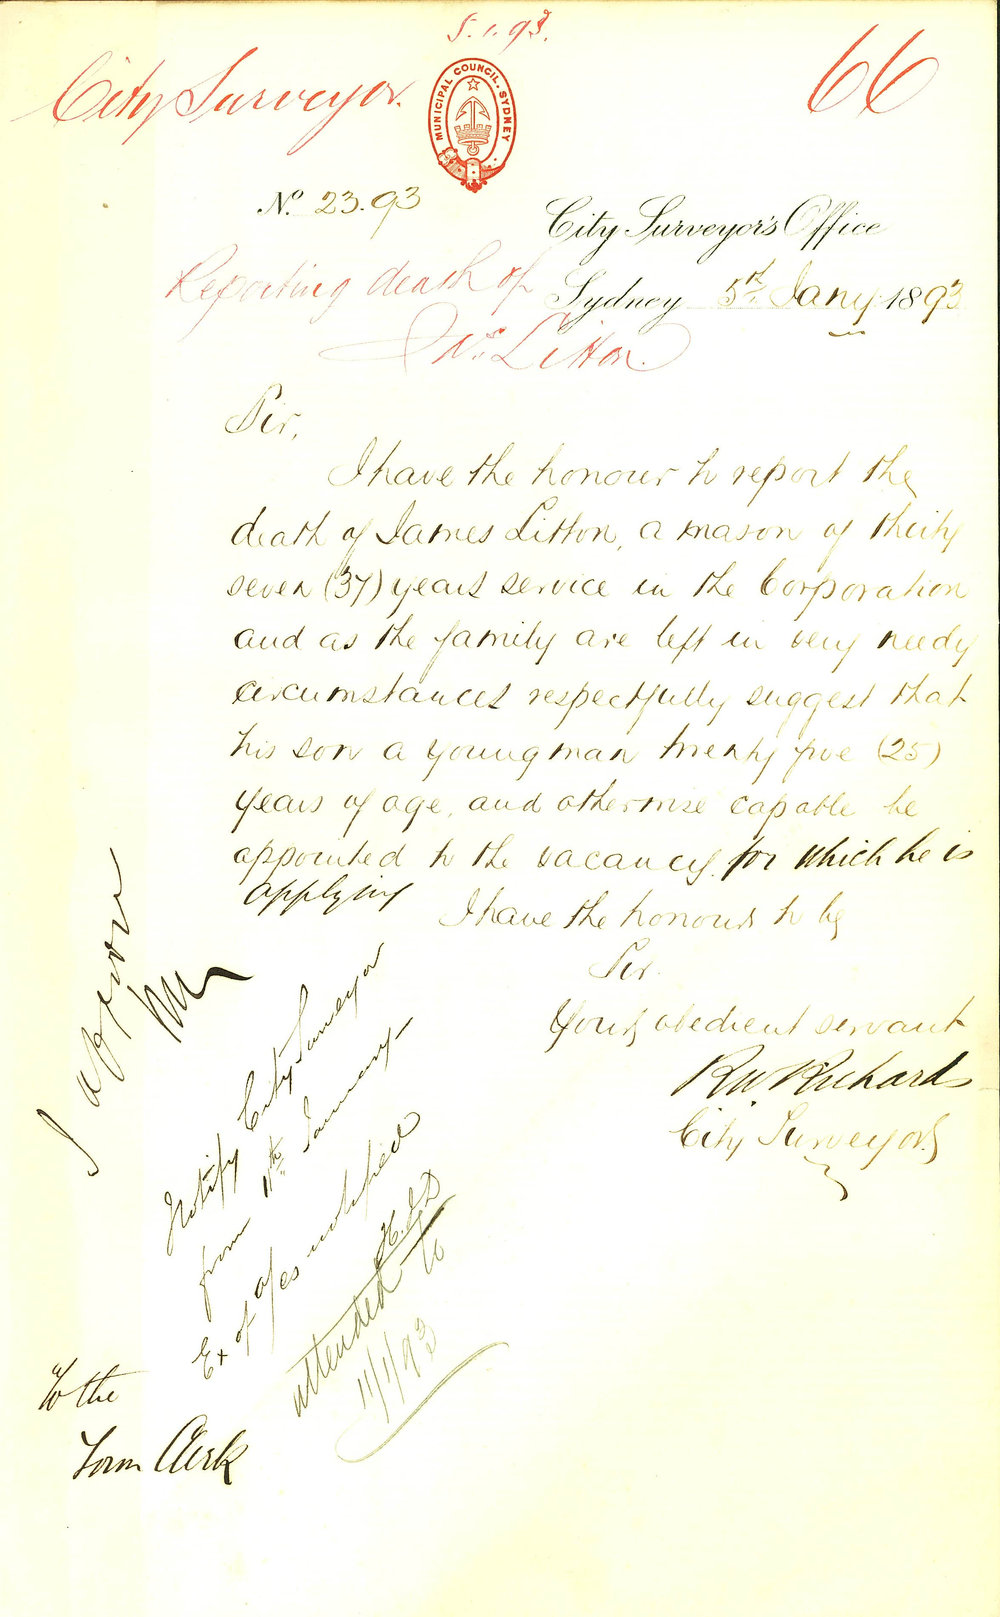 5.1.93.
City Surveyor.
66
MUNICIPAL COUNCIL. SYDNEY
No. 23.93
City Surveyor's Office
Reporting death of
Sydney 5th Jany 1893
Jas Litton.
Sir,
I have the honour to report the
death of James Litton, a mason of thirty
seven (37) years service in the Corporation
and as the family are left in very needy
circumstances respectfully suggest that
his son a young man twenty five (25)
years of age, and otherwise capable be
appointed to the vacancy for which he is
applying
I have the honour to be
Sir.
Your obedient servant
R W Richards
City Surveyor
I approve
Notify City Surveyor
from 11th January
Ex of a/cs notified
attended to
11/1/93
To the
Town Clerk